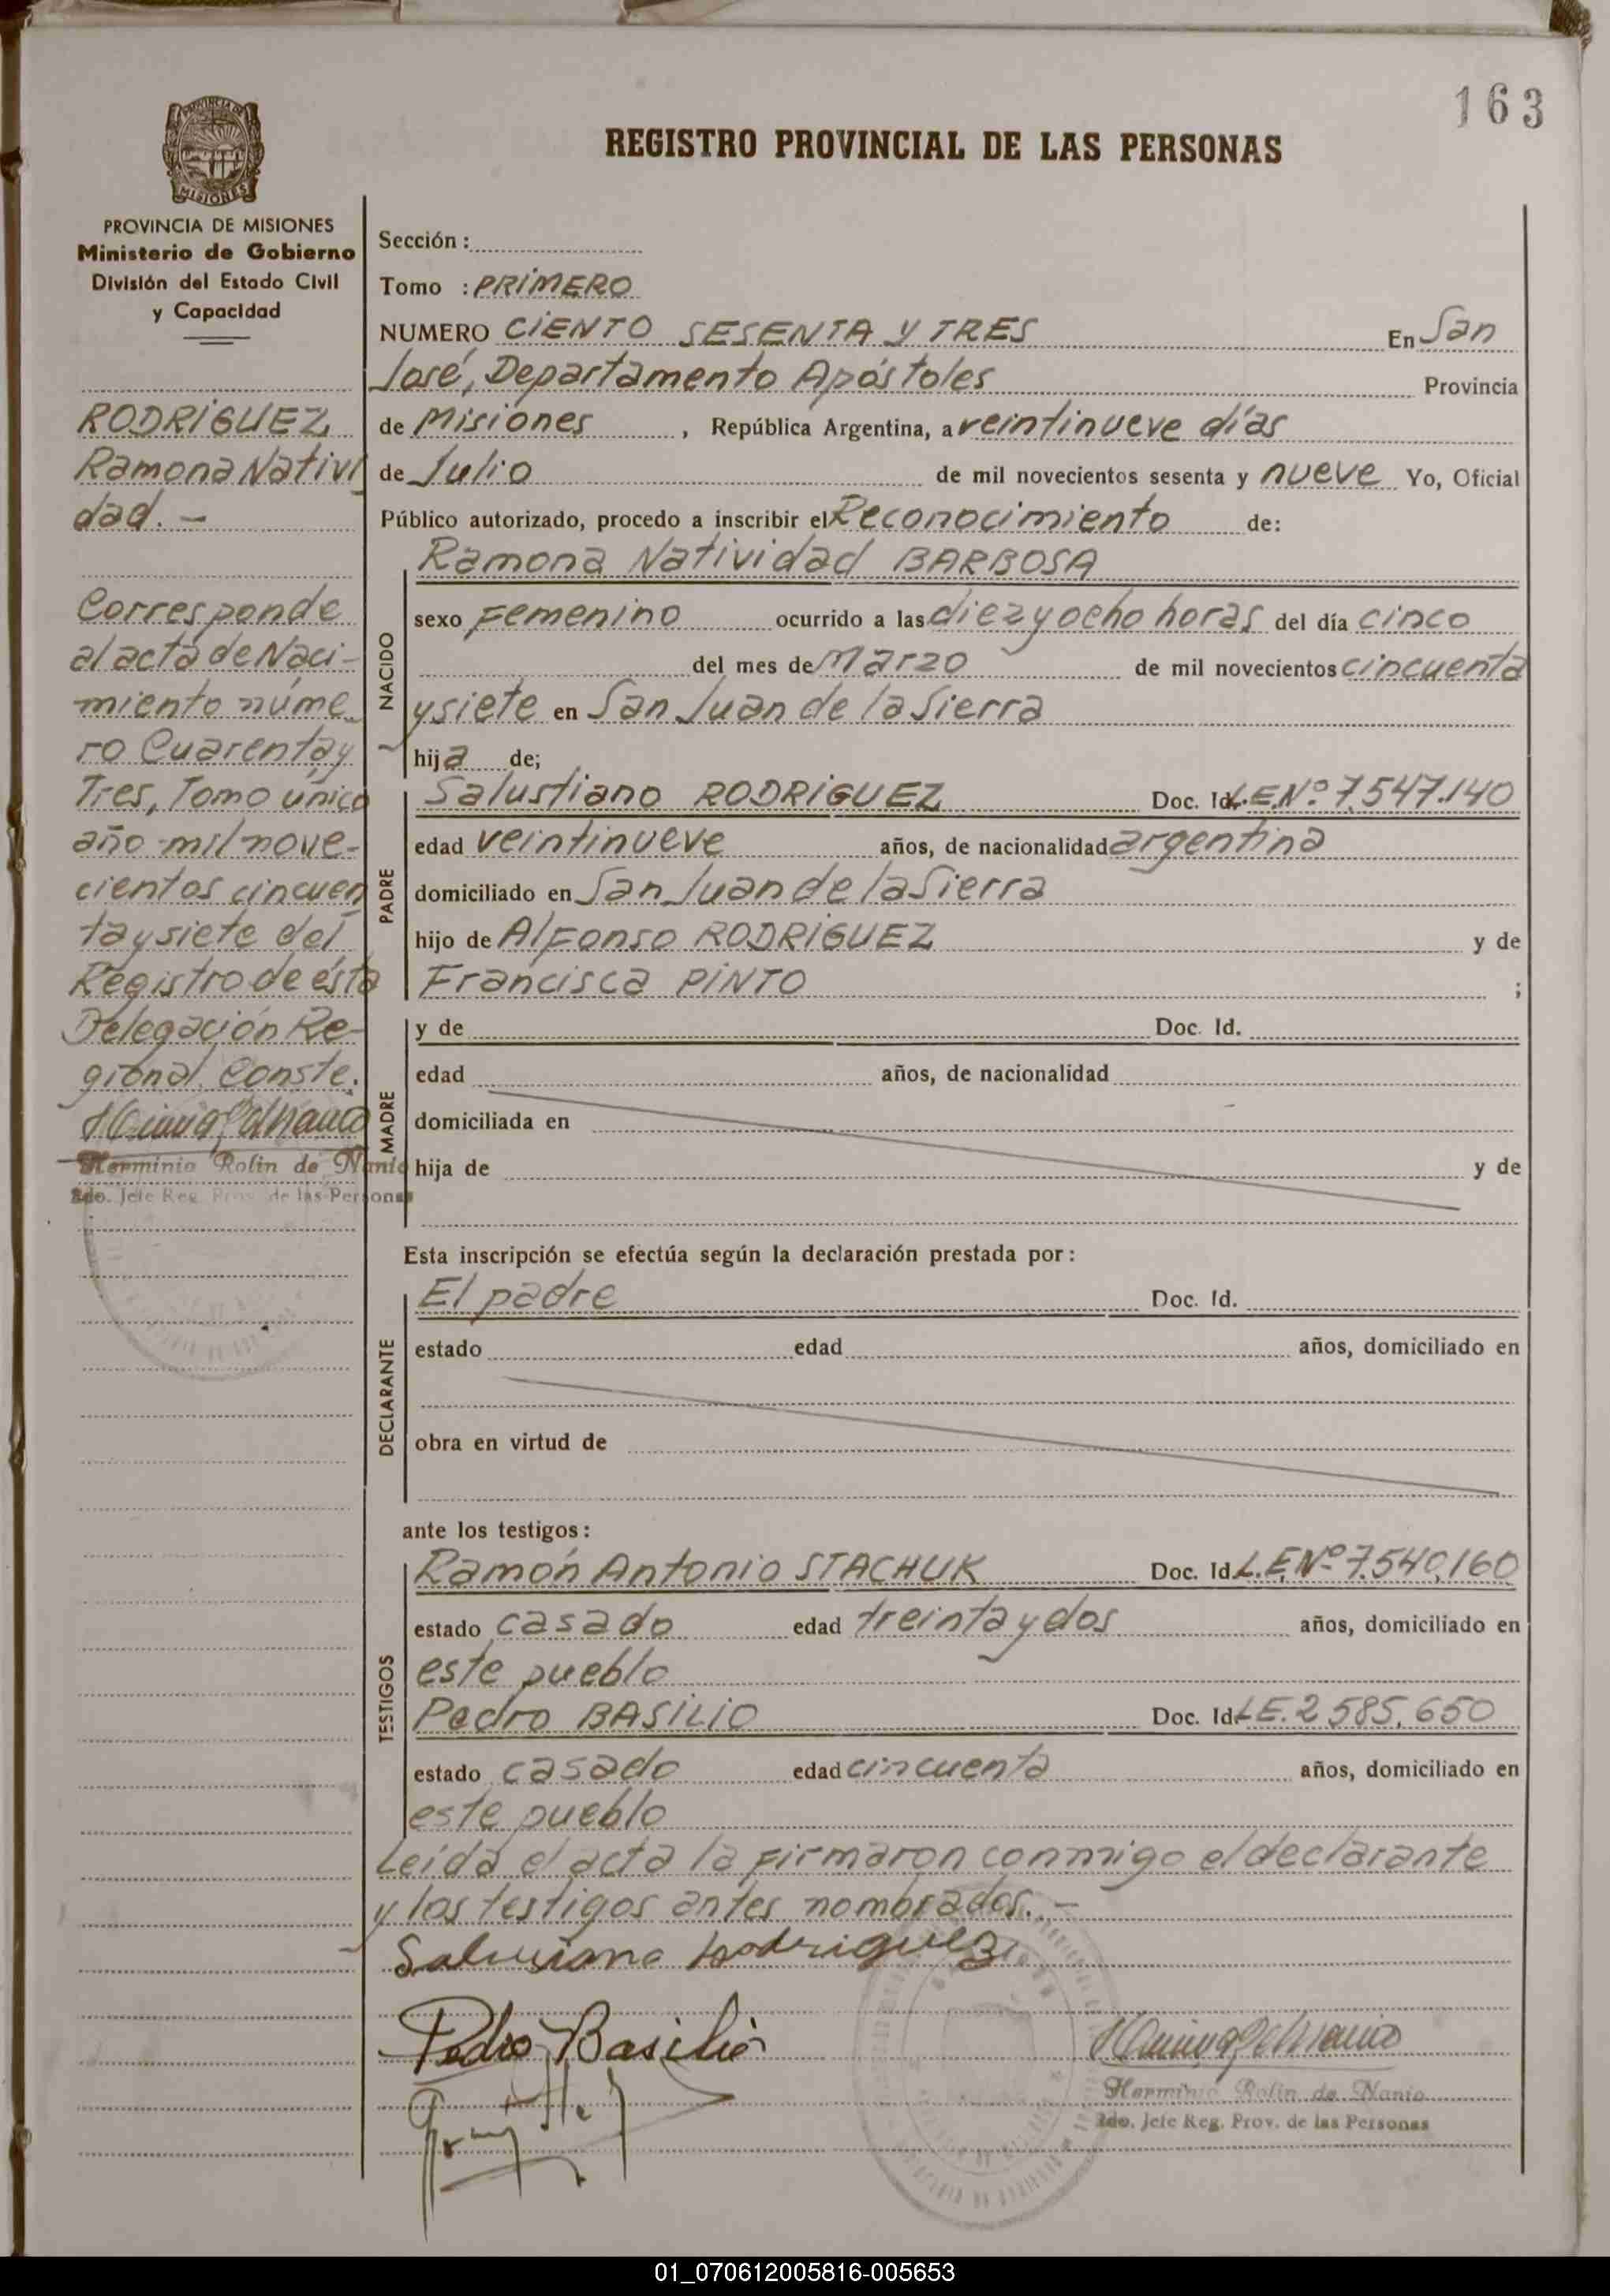 163
REGISTRO PROVINCIAL DE LAS PERSONAS
PROVINCIA DE MISIONES
Ministerio de Gobierno
División del Estado Civil
y Capacidad
RODRIGUEZ,
Ramona Nativi
dad. -
Corresponde
al acta de Naci-
miento núme
ro Cuarenta y
Tres, Tomo único
año mil nove-
cientos cincuen
ta y siete del
Registro de ésta
Delegación Re-
gional. Conste.
Herminia Rolin de Nanio
2do. Jefe Reg. Prov. de las Personas
Sección :
Tomo : PRIMERO
NUMERO CIENTO SESENTA Y TRES En San
José, Departamento Apóstoles Provincia
de Misiones , República Argentina, a veintinueve días
de Julio de mil novecientos sesenta y nueve Yo, Oficial
Público autorizado, procedo a inscribir el Reconocimiento de:
NACIDO
Ramona Natividad BARBOSA
sexo Femenino ocurrido a las diez y ocho horas del día cinco
del mes de Marzo de mil novecientos cincuenta
y siete en San Juan de la Sierra
hija de;
PADRE
Salustiano RODRIGUEZ Doc. Id. L.E.Nº 7.547.140
edad veintinueve años, de nacionalidad argentina
domiciliado en San Juan de la Sierra
hijo de Alfonso RODRIGUEZ y de
Francisca PINTO ;
MADRE
y de Doc. Id.
edad años, de nacionalidad
domiciliada en
hija de y de
Esta inscripción se efectúa según la declaración prestada por:
DECLARANTE
El padre Doc. Id.
estado edad años, domiciliado en
obra en virtud de
ante los testigos:
TESTIGOS
Ramón Antonio STACHUK Doc. Id. L.E.Nº 7.540.160
estado casado edad treinta y dos años, domiciliado en
este pueblo
Pedro BASILIO Doc. Id. L.E. 2.585.650
estado casado edad cincuenta años, domiciliado en
este pueblo
Leída el acta la firmaron conmigo el declarante
y los testigos antes nombrados.-
Salusiano Rodriguez
Pedro Basilio
Herminia Rolin de Nanio
2do. Jefe Reg. Prov. de las Personas
01_070612005816-005653